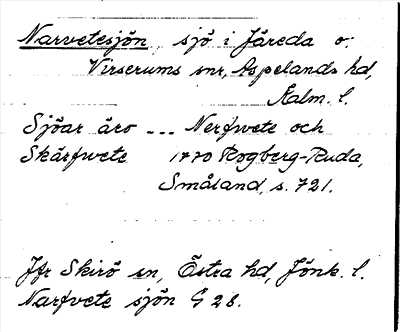 Narvetesjön sjö i Järeda o.
Virserums snr, Aspelands hd,
Kalm. l.
Sjöar äro --- Nerfwete och
Skärfwete 1770 Rogberg-Ruda,
Småland, s. 721.
Jfr Skirö sn, Östra hd, Jönk. l.
Narfvete sjön G 28.